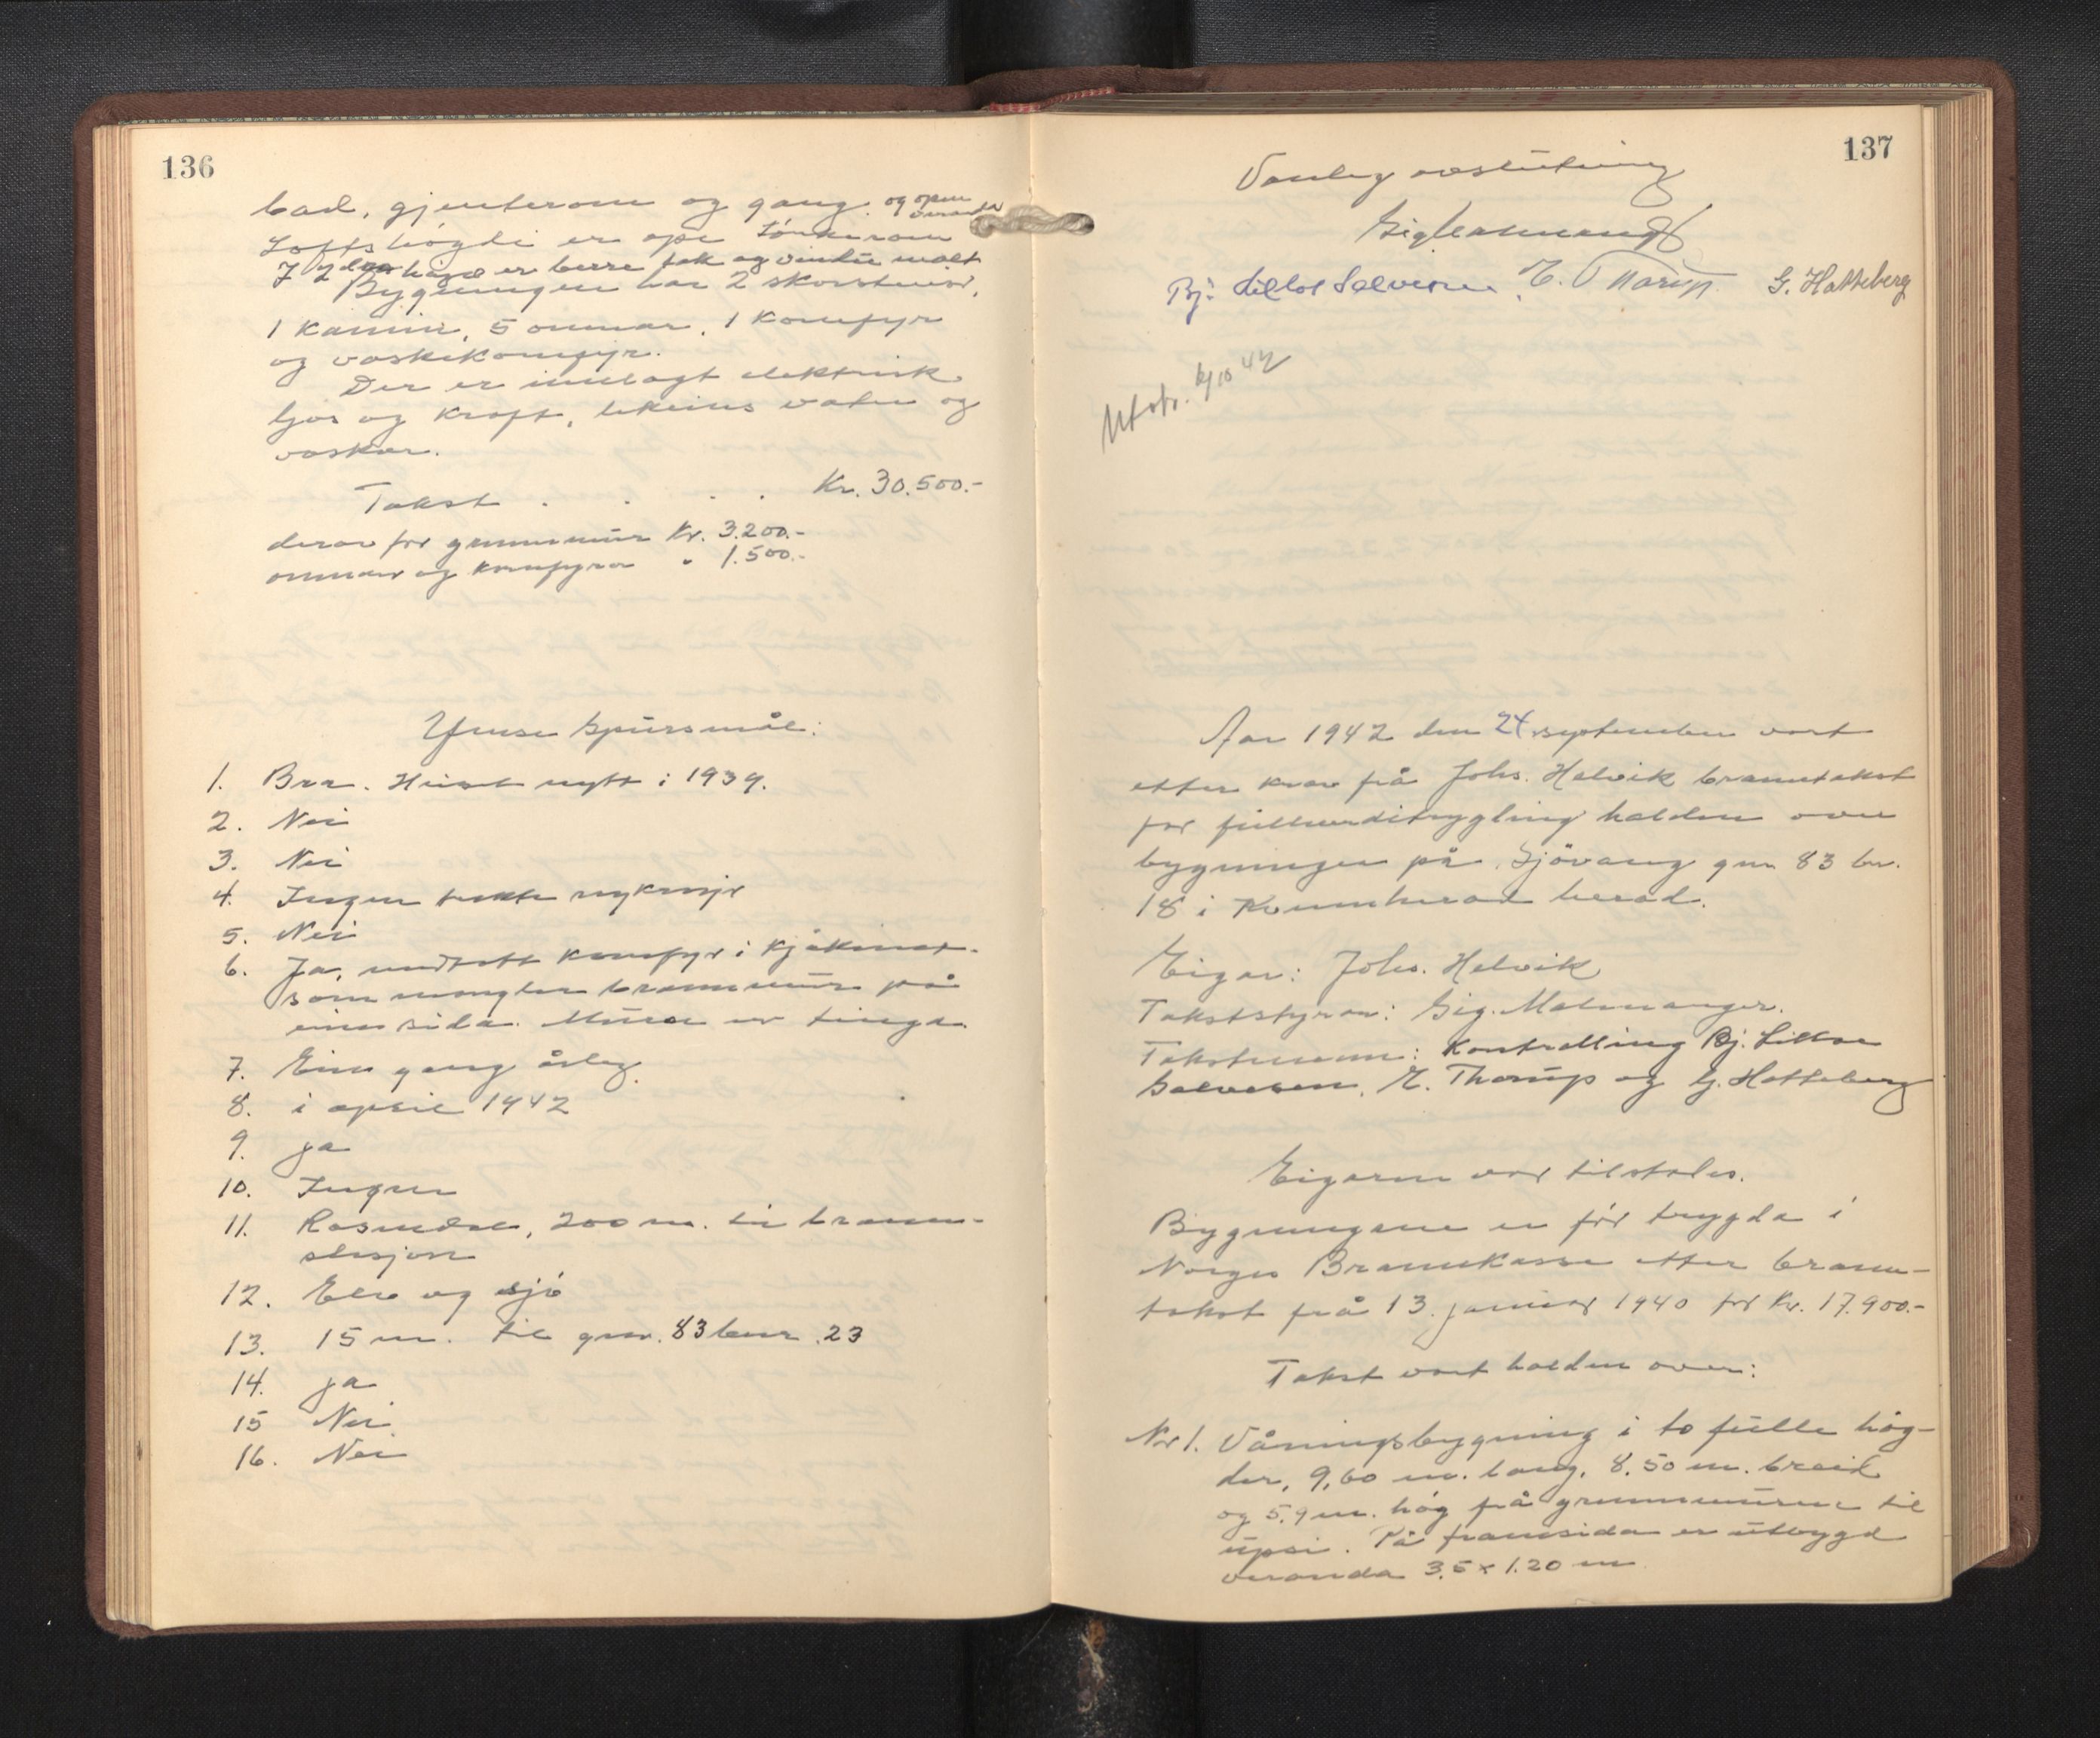 136
bad, gjenterom og gang. og open
veranda
Loftshøgdi er ope tørkerom
I 2dra høgd er berre tak og vindu malt
Bygningen har 2 skorsteinar,
1 kamin, 5 omnar, 1 komfyr
og vaskekomfyr.
Der er innlagt elektrisk
ljos og kraft, likeins vatn og
vaskar.
Takst . . . . Kr. 30.500.-
derav for grunnmur kr. 3.200.-
omnar og komfyrar " 1.500.-
Ymse spursmål:
1. Bra. Huset nytt i 1939.
2. Nei
3. Nei
4. Ingen
5. Nei
6. Ja, undtatt komfyr i kjøkenet.
som mangler brannmur på
eine sida. Muren er tinga.
7. Ein gang årleg.
8. i april 1942
9. ja
10. Ingen
11. Rosendal, 200 m. til brann-
stasjon
12. Elv og sjø
13. 15 m. til gnr. 83 bnr. 23
14. ja
15 Nei
16. Nei
137
Vanleg avslutning
Sig Malmanger
Bj. Lillos Salvesen E. Thorup G. Hatteberg
Utskr. 6/10 42
Aar 1942 den 24. september vart
etter krav frå Johs. Helvik branntakst
for fullverditrygding halden over
bygningen på Sjövang gnr. 83 bnr.
18 i Kvinnherad herad.
Eigar: Johs. Helvik
Takststyrar: Sig. Malmanger.
Takstmenn: Kontrolling Bj. Lillos
Salvesen, E. Thorup og G. Hatteberg
Eigaren var tilstades.
Bygningane er før trygda i
Norges Brannkasse etter brann-
takst frå 13. januar 1940 for kr. 17.900.-
Takst vart halden over:
Nr 1. Våningsbygning i to fulle høg-
der, 9,60 m. lang, 8.50 m. breid
og 5.9 m. høg frå grunnmuren til
upsi. På framsida er utbygd
veranda 3.5 x 1.20 m